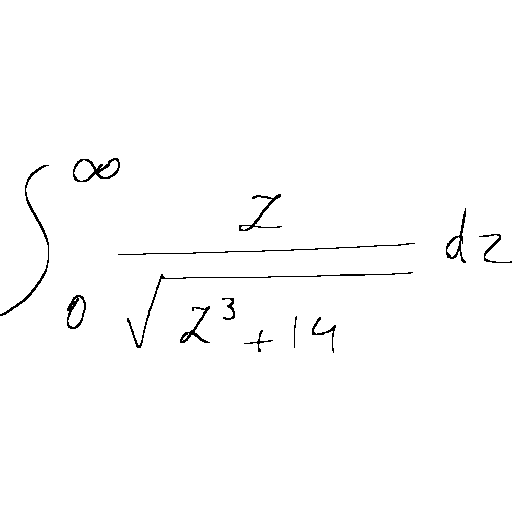 \int_{0}^{\infty} \frac{z}{\sqrt{z^3+14}} dz